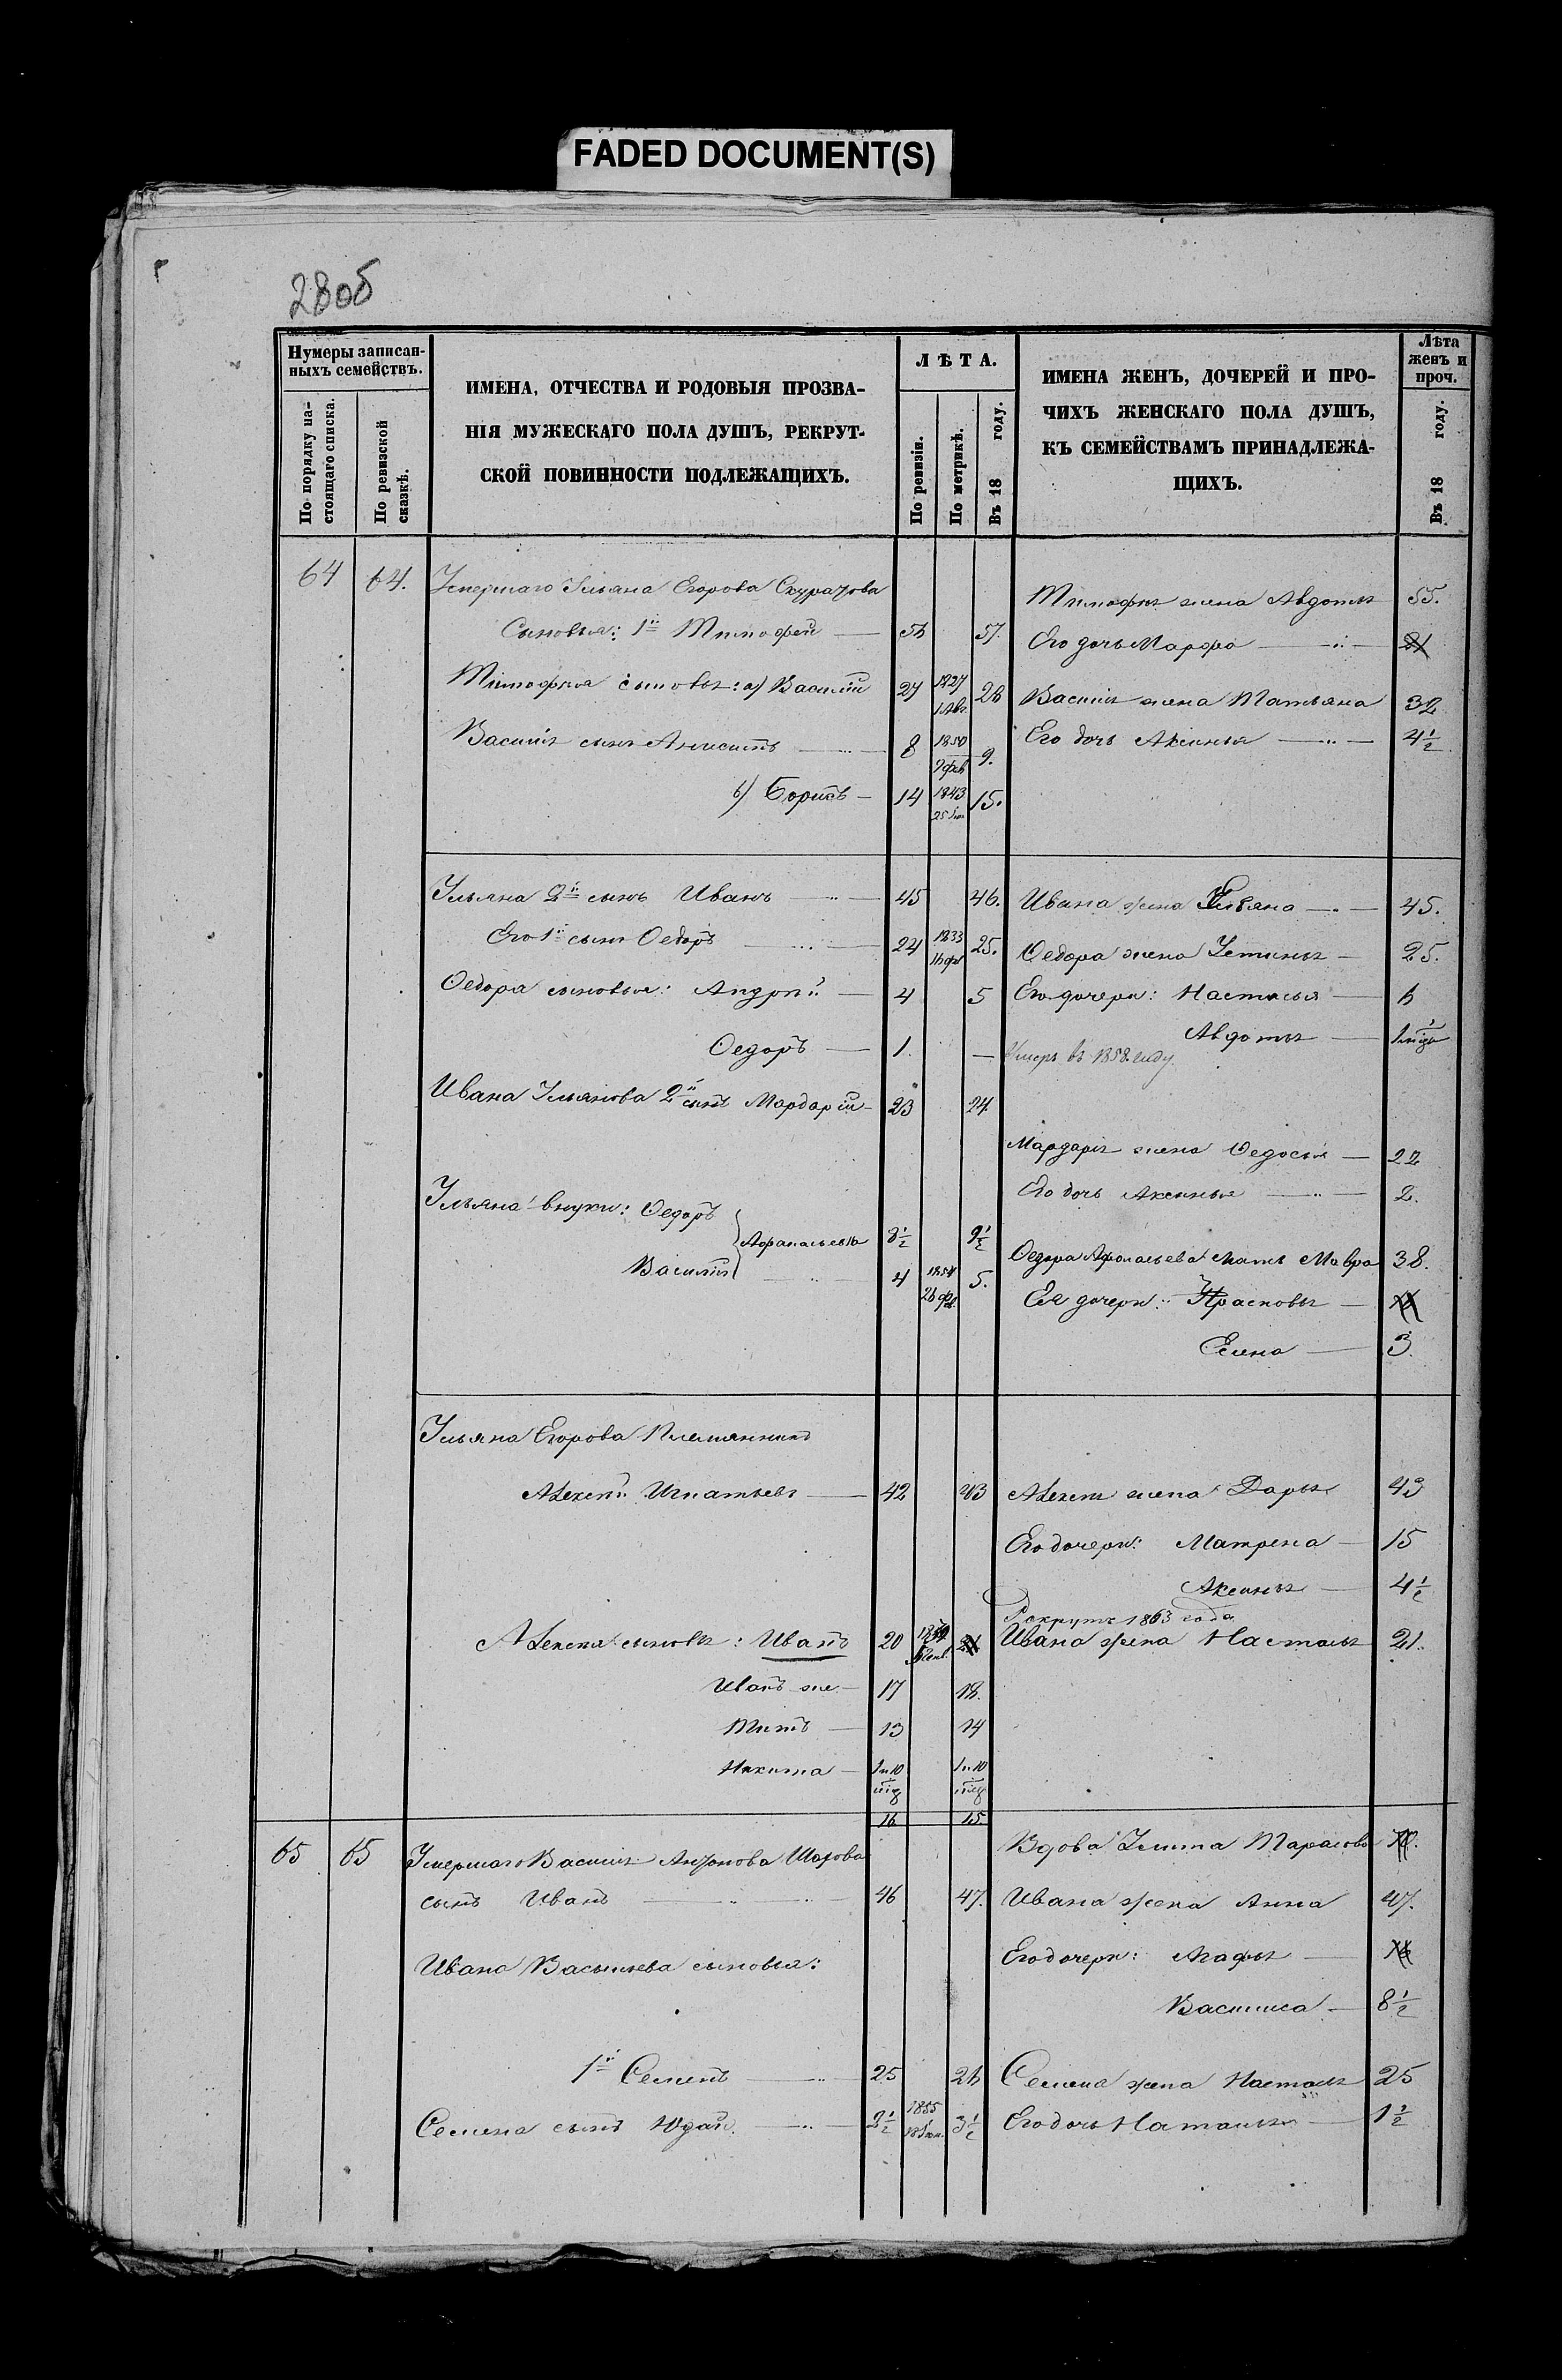 FADED DOCUMENT(S)
280об
Нумеры записан-
ныхъ семействъ.
По порядку на-
стоящаго списка.
По ревизской
сказкѣ.
ИМЕНА, ОТЧЕСТВА И РОДОВЫЯ ПРОЗВА-
НІЯ МУЖЕСКАГО ПОЛА ДУШЪ, РЕКРУТ-
СКОЙ ПОВИННОСТИ ПОДЛЕЖАЩИХЪ.
ЛѢТА.
По ревизіи.
По метрикѣ.
Въ 18 году.
ИМЕНА ЖЕНЪ, ДОЧЕРЕЙ И ПРО-
ЧИХЪ ЖЕНСКАГО ПОЛА ДУШЪ,
КЪ СЕМЕЙСТВАМЪ ПРИНАДЛЕЖА-
ЩИХЪ.
Лѣта
женъ и
проч.
Въ 18 году.
64 64. Умершаго Ульяна Егорова Скуратова
Тимофея жена Авдотья 55.
Сыновья: 1й Тимофей — 56 57.
Его дочь Марфа — 21
Тимофея сыновья: а) Василий 27 1827 28
Василья жена Татьяна 32
Василья сынъ Аникита — 8 1850 9 фев 9.
Его дочь Аксинья — 4½
б) Борисъ — 14 1843 15.
Ульяна 2й сынъ Иванъ — 45 46.
Ивана жена Ульяна — 45.
Его 1й сынъ Ѳедоръ — 24 1833 16 фе 25.
Ѳедора жена Устинья — 25.
Ѳедора сыновья: Андрей — 4 5
Его дочери: Настасья — 6
Авдотья —
Ѳедоръ — 1. — Умеръ въ 1858 году
Ивана Ульянова 2й сынъ Мардарій — 23 24
Мардарія жена Ѳедосья — 22
Его дочь Аксинья — 2.
Ульяна внуки: Ѳедоръ
Афанасьевы 8½ 9½
Ѳедора Афанасьева мать Мавра 38.
Василій — 4 1854 26 фев. 5.
Ея дочери: Прасковья —
Елена — 3.
Ульяна Егорова Племянникъ
Алексѣй Игнатьевъ — 42 43
Алексѣя жена Дарья 43
Его дочери: Матрена — 15
Аксинья — 4½
Рекрутъ 1863 года
Алексѣя сыновья: Иванъ 20 21
Ивана жена Настасья 21.
Иванъ же — 17 18.
Титъ — 13 14
Никита — 1 и 10 мѣс 1 и 10 мѣс
16 15
65 65 Умершаго Василья Антонова Шарова
Вдова Улита Тарасова
сынъ Иванъ — 46 47.
Ивана жена Анна 47.
Ивана Васильева сыновья:
Его дочери: Агафья —
Василиса — 8½
1й Семенъ — 25 26
Семена жена Настасья 25
Семена сынъ Юдай. — 2½ 1855 3½
Его дочь Наталья — 1½